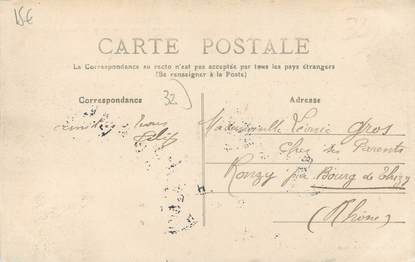 15€
CARTE POSTALE
La Correspondance au recto n'est pas acceptée par tous les pays étrangers
(Se renseigner à la Poste)
Correspondance
32
Adresse
Mademoiselle Léonie Gros
Chez ses Parents
Ronzy par Bourg de Thizy
(Rhône)